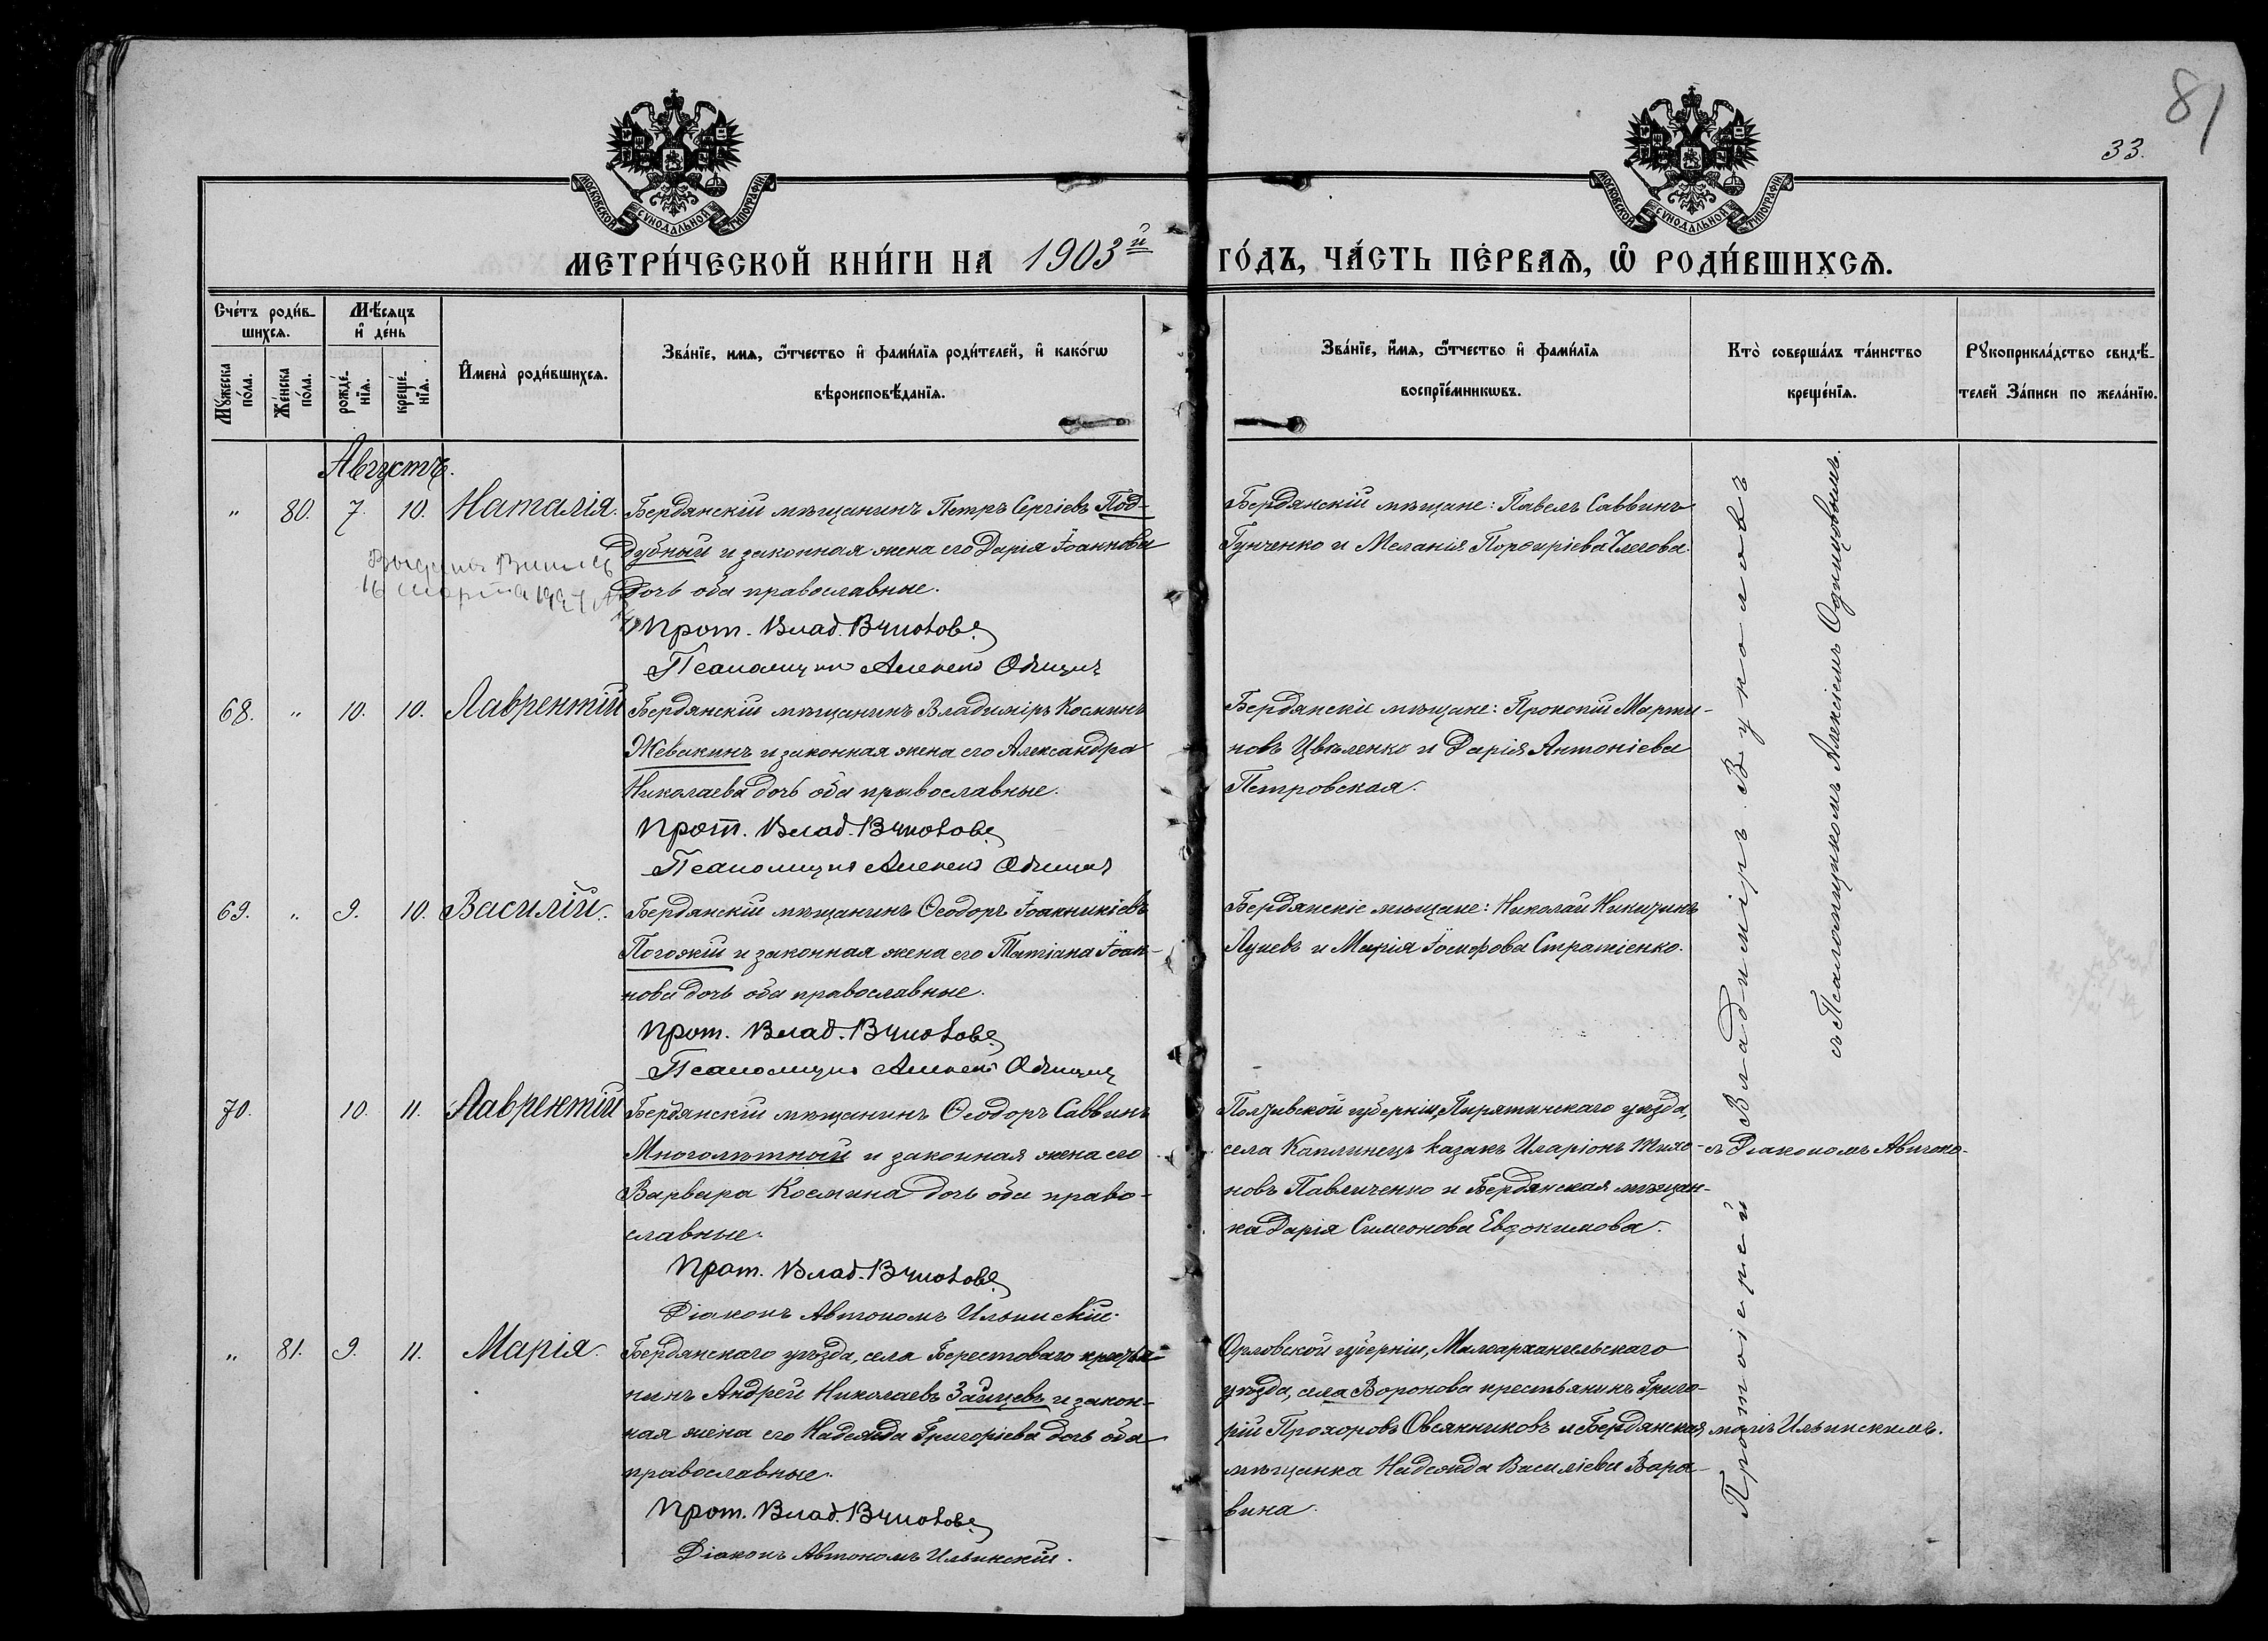 81
33.
МОСКОВСКОЙ СУНОДАЛЬНОЙ ТИПОГРАФІИ
МОСКОВСКОЙ СУНОДАЛЬНОЙ ТИПОГРАФІИ
МЕТРИ́ЧЕСКОЙ КНИ́ГИ НА 1903й ГО́ДЪ, ЧА́СТЬ ПЕ́РВАѦ, Ѡ РОДИ́ВШИХСѦ.
Сче́тъ роди́в-
шихсѧ.
Мꙋжеска
по́ла.
Же́нска
по́ла.
Мѣ́сѧцъ
и҆ де́нь
рожде́-
нїѧ.
креще́-
нїѧ.
И҆мена̀ роди́вшихсѧ.
Зва́нїе, имѧ, ѻ҆́тчество и҆ фами́лїѧ роди́телей, и҆ како́гѡ
вѣроисповѣ́данїѧ.
Зва́нїе, и҆́мѧ, ѻ҆́тчество и҆ фами́лїѧ
воспрїе́мникѡвъ.
Кто̀ соверша́лъ та́инство
креще́нїѧ.
Рꙋкоприкла́дство свидѣ́-
телей За́писи по жела́нїю.
Августъ.
" 80. 7. 10. Наталія.
Бердянскій мѣщанинъ Петръ Сергіевъ Под-
дубный и законная жена его Дарія Іоаннова
дочь оба православные.
Прот. Влад. Вуколовъ
Псаломщикъ Алексѣй Одинцовъ
Бердянскій мѣщане: Павелъ Саввинъ
Гунченко и Меланія Порфиріева
16 марта
68. " 10. 10. Лаврентій
Бердянскій мѣщанинъ Владиміръ Косминъ
Жевакинъ и законная жена его Александра
Николаева дочь оба православные.
Прот. Влад. Вуколовъ
Псаломщикъ Алексѣй Одинцовъ
Бердянскіе мѣщане: Прокопій Марти-
новъ Цвѣленко и Дарія Антоніева
Петровская.
69. " 9. 10. Василій.
Бердянскій мѣщанинъ Ѳеодоръ Іоанникіевъ
Погожій и законная жена его Татіана Іоан-
нова дочь оба православные.
Прот. Влад. Вуколовъ
Псаломщикъ Алексѣй Одинцовъ
Бердянскіе мѣщане: Николай Никитинъ
и Марія Іосифова Стратіенко.
70. 10. 11. Лаврентій
Бердянскій мѣщанинъ Ѳеодоръ Саввинъ
Многолѣтный и законная жена его
Варвара Космина дочь оба право-
славные.
Прот. Влад. Вуколовъ
Діаконъ Автономъ Ильинскій.
Полтавской губерніи, Пирятинскаго уѣзда,
села Каплинецъ казакъ Иларіонъ Тихо-
новъ Павличенко и Бердянская мѣщан-
ка Дарія Симеонова Евдокимова.
" 81. 9. 11. Марія.
Бердянскаго уѣзда, села Берестоваго крестья-
нинъ Андрей Николаевъ Зайцевъ и закон-
ная жена его Надежда Григоріева дочь оба
православные.
Прот. Влад. Вуколовъ
Діаконъ Автономъ Ильинскій.
Орловской губерніи, Малоархангельскаго
уѣзда, села Воронова крестьянинъ Григо-
рій Прохоровъ Овсянниковъ и Бердянская
мѣщанка Надежда Василіева Вара-
вина.
Протоіерей Владиміръ Вуколовъ
съ Псаломщикомъ Алексіемъ Одинцовымъ.
съ Діакономъ Автоно-
момъ Ильинскимъ.